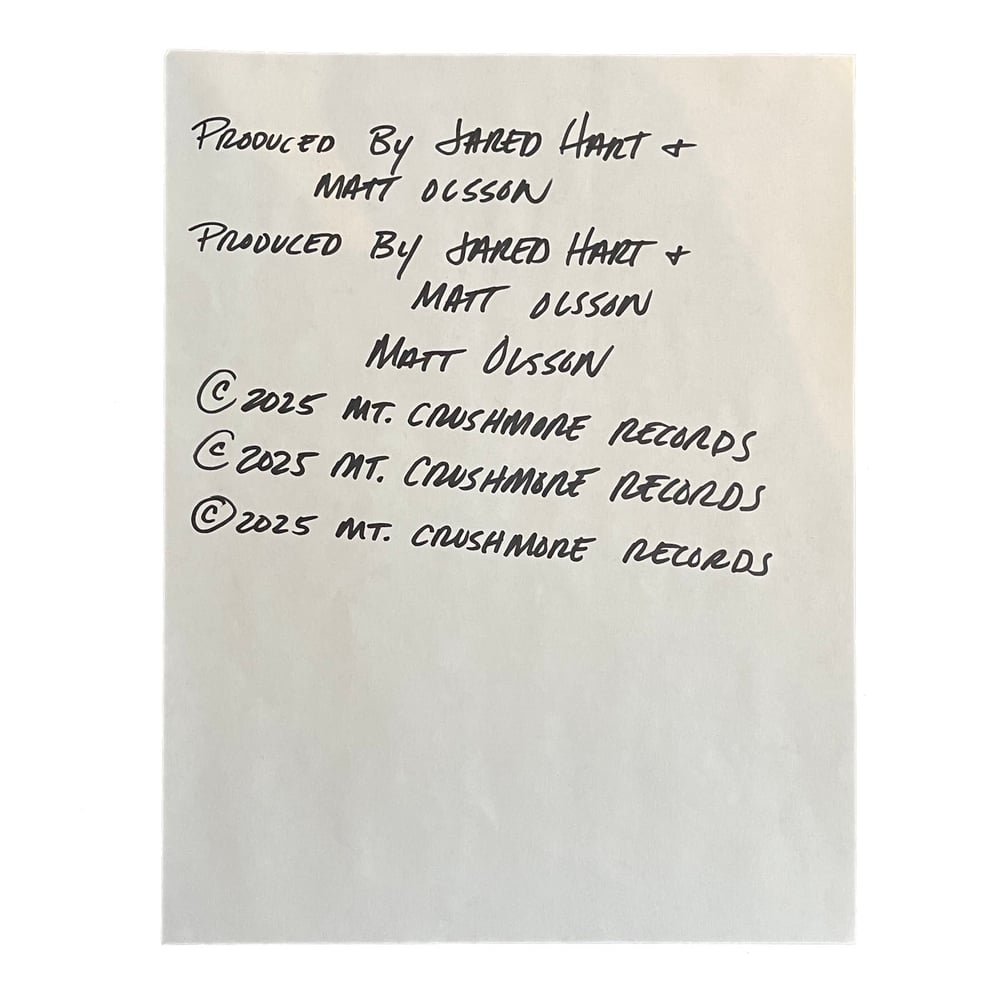 PRODUCED By JARED HART +
MATT OLSSON
PRODUCED By JARED HART +
MATT OLSSON
MATT OLSSON
© 2025 MT. CRUSHMORE RECORDS
© 2025 MT. CRUSHMORE RECORDS
© 2025 MT. CRUSHMORE RECORDS